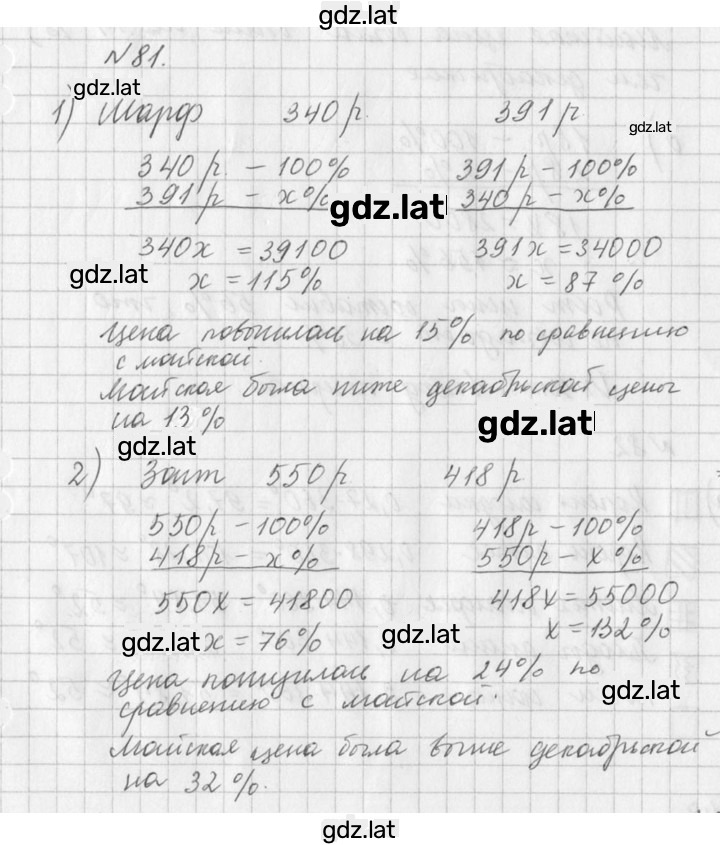 gdz.lat
№ 81.
gdz.lat
1) Шарф 340 р. 391 р.
gdz.lat
340 р. – 100% 391 р – 100%
391 р – x% 340 р – x%
gdz.lat
340x = 39100 391x = 34000
gdz.lat x = 115% x = 87 %
Цена повысилась на 15% по сравнению
с майской.
Майская была ниже декабрьской цены
на 13 %
gdz.lat
gdz.lat
2) Зонт 550 р. 418 р
550 р – 100% 418 р – 100%
418 р – x % 550 р – x %
550x = 41800 418x = 55000
gdz.lat x = 76% gdz.lat x = 132 %
Цена понизилась на 24% по
gdz.lat
сравнению с майской.
Майская цена была выше декабрьской
на 32 %.
gdz.lat